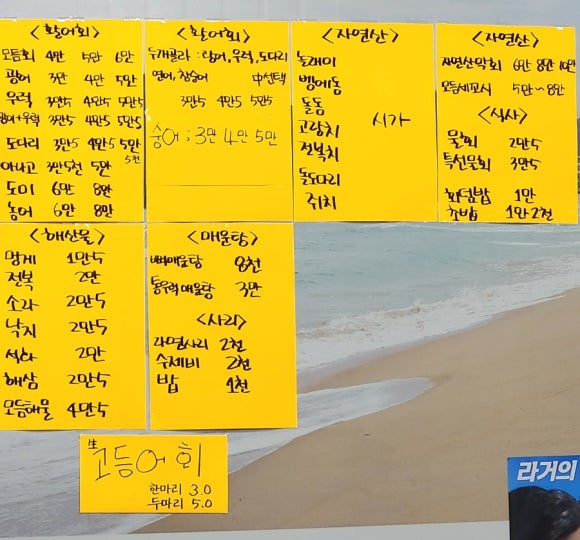 <활어회>
모듬회 4만 5만 6만
광어 3만 4만 5만
우럭 3만5 4만5 5만5
광어+우럭 3만5 4만5 5만5
도다리 3만5 4만5 5만5
아나고 3만5천 5만
5천
도미 6만 8만
농어 6만 8만
<활어회>
두개골라 : 광어, 우럭, 도다리
연어, 참숭어 中선택
3만5 4만5 5만5
숭어 ; 3만 4만 5만
<자연산>
놀래미
벵에돔
돌돔
고랑치
전복치
돌도다리
쥐치
시가
<자연산>
자연산막회 6만 8만 10만
모듬세꼬시 5만~8만
<식사>
물회 2만5
특선물회 3만5
회덮밥 1만
초밥 1만2천
<해산물>
멍게 1만5
전복 2만
소라 2만5
낙지 2만5
석화 2만
해삼 2만5
모듬해물 4만5
<매운탕>
뼈매운탕 8천
통우럭매운탕 3만
<사리>
라면사리 2천
수제비 2천
밥 1천
生
고등어 회
한마리 3.0
두마리 5.0
라거의